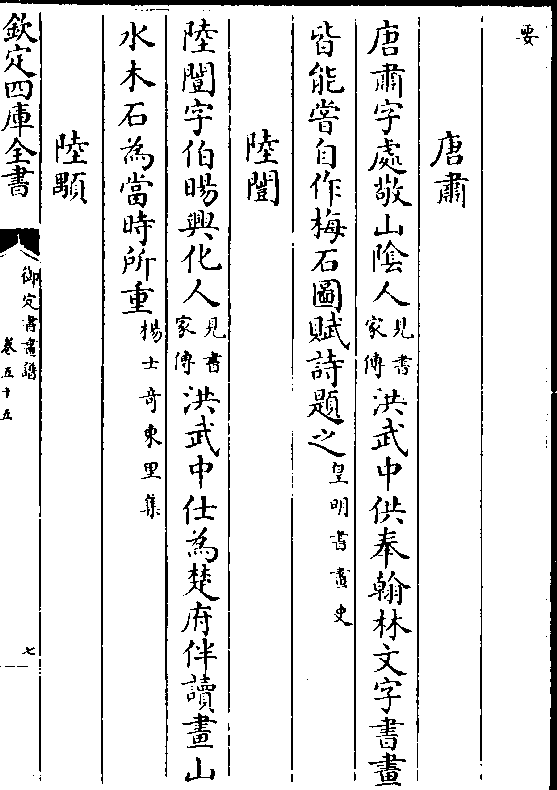 要
唐肅
唐肅字處敬山陰人見書家傳洪武中供奉翰林文字書畫
皆能嘗自作梅石圖賦詩題之皇明書畫史
陸闓
陸闓字伯暘興化人見書家傳洪武中仕為楚府伴讀畫山
水木石為當時所重楊士奇東里集
陸顒
欽定四庫全書
御定書畫譜
卷五十五
七